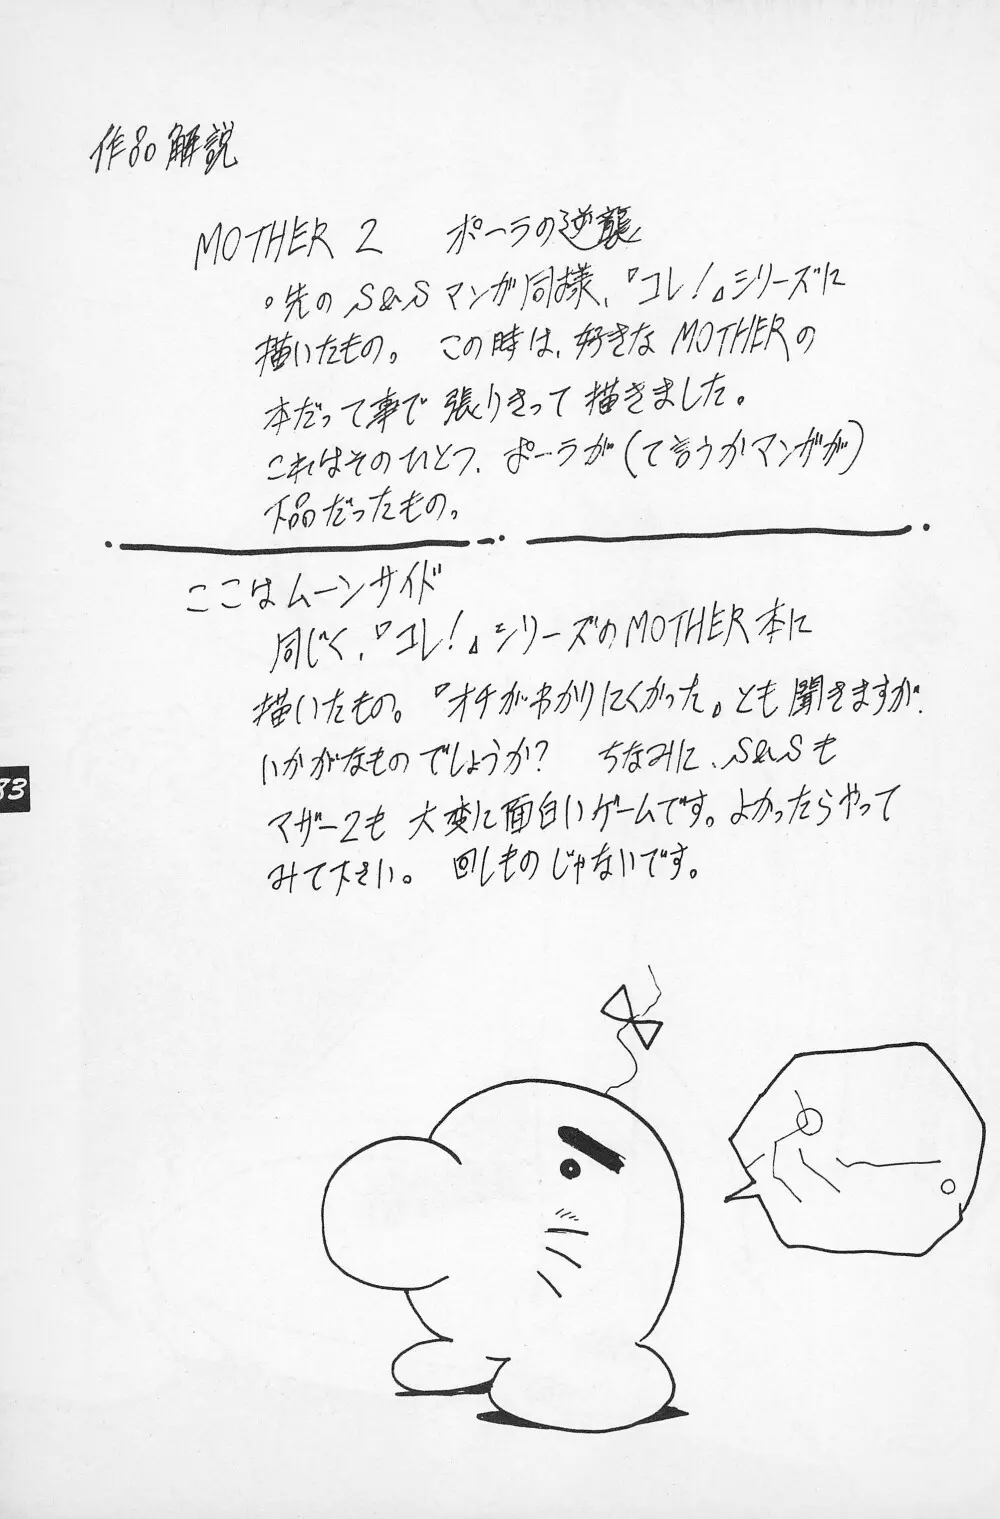 作品解説
MOTHER 2 ポーラの逆襲
。先の S&S マンガ同様、『コレ!』シリーズに
描いたもの。 この時は、好きな MOTHERの
本だって事で 張りきって 描きました。
これはそのひとつ、ポーラが(て言うかマンガが)
下品だったもの。
ここはムーンサイド
同じく、『コレ!』シリーズのMOTHER本に
描いたもの。『オチがわかりにくかった』とも聞きますが、
いかがなものでしょうか? ちなみに、S&Sも
マザー2も 大変に面白いゲームです。よかったらやって
みて下さい。 回しものじゃないです。
83